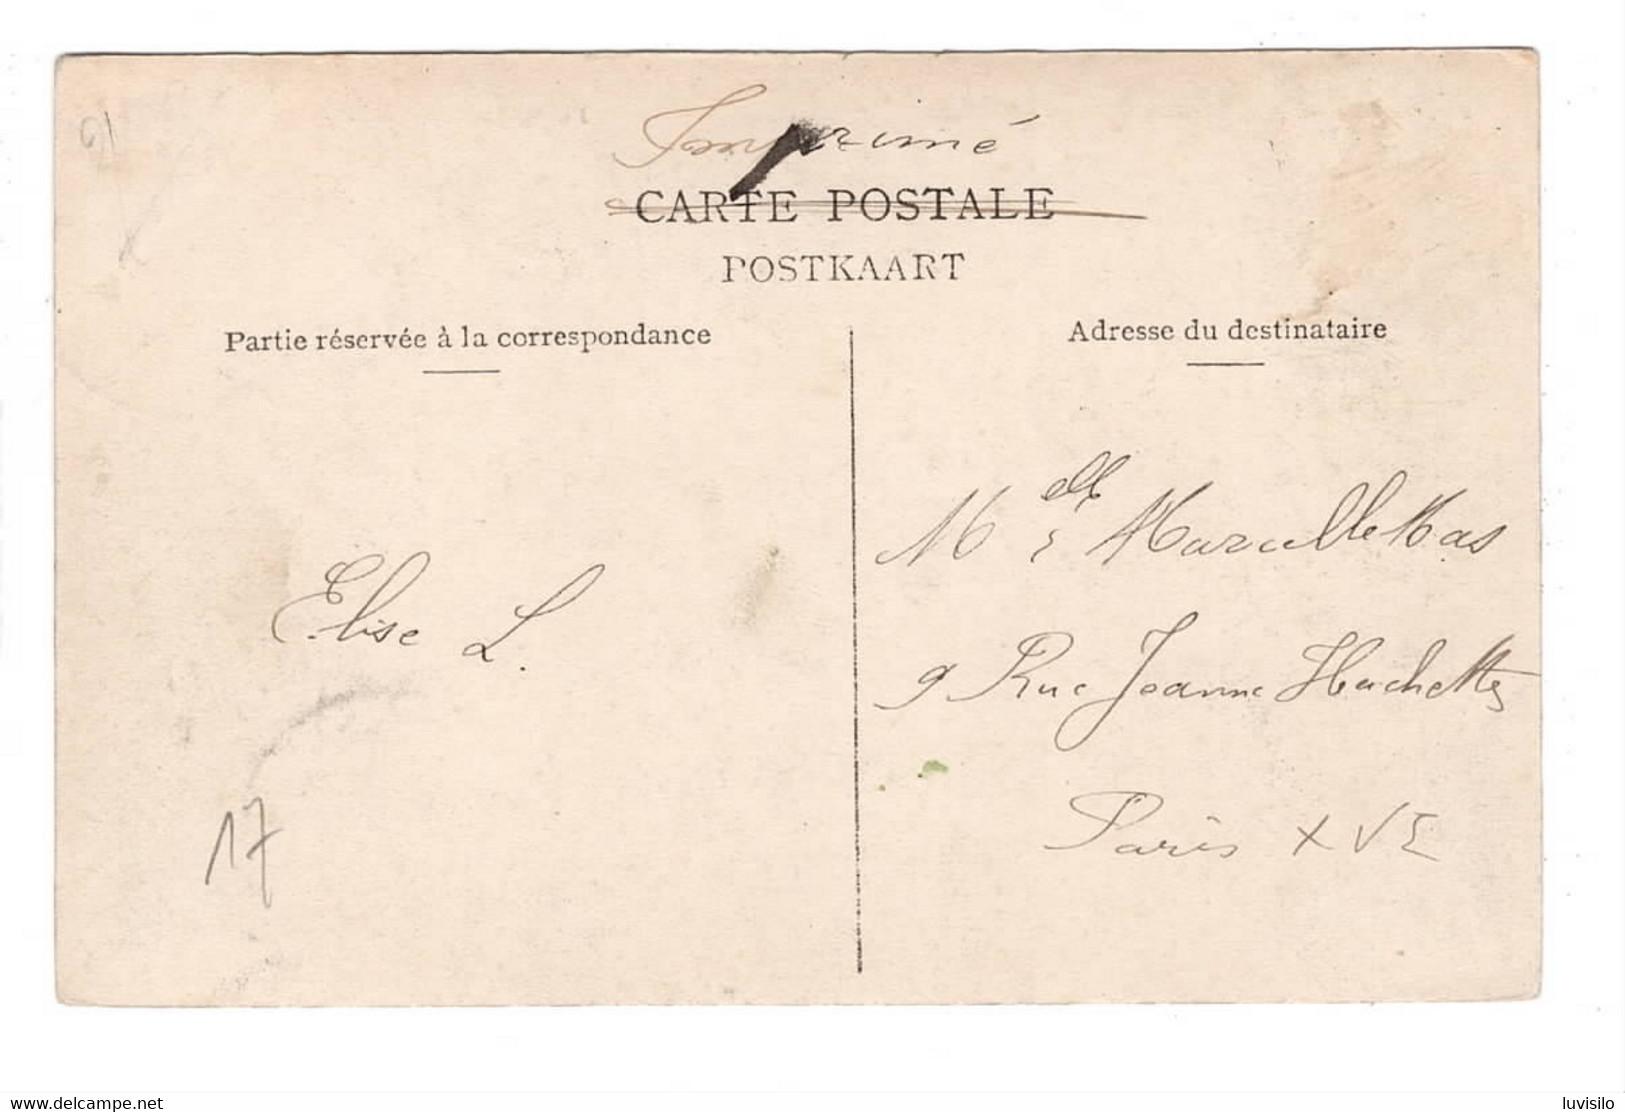 21
Imprimé
CARTE POSTALE
POSTKAART
Partie réservée à la correspondance
Adresse du destinataire
Melle Marcelle Mas
9 Rue Jeanne Hachette
Paris XVE
Elise L.
17
www.delcampe.net
luvisilo